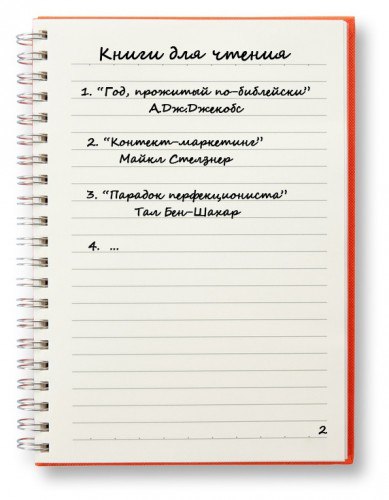 Книги для чтения
1. "Год, прожитый по-библейски"
А.Дж.Джекобс
2. "Контект-маркетинг"
Майкл Стелзнер
3. "Парадок перфекциониста"
Тал Бен-Шахар
4. ...
2